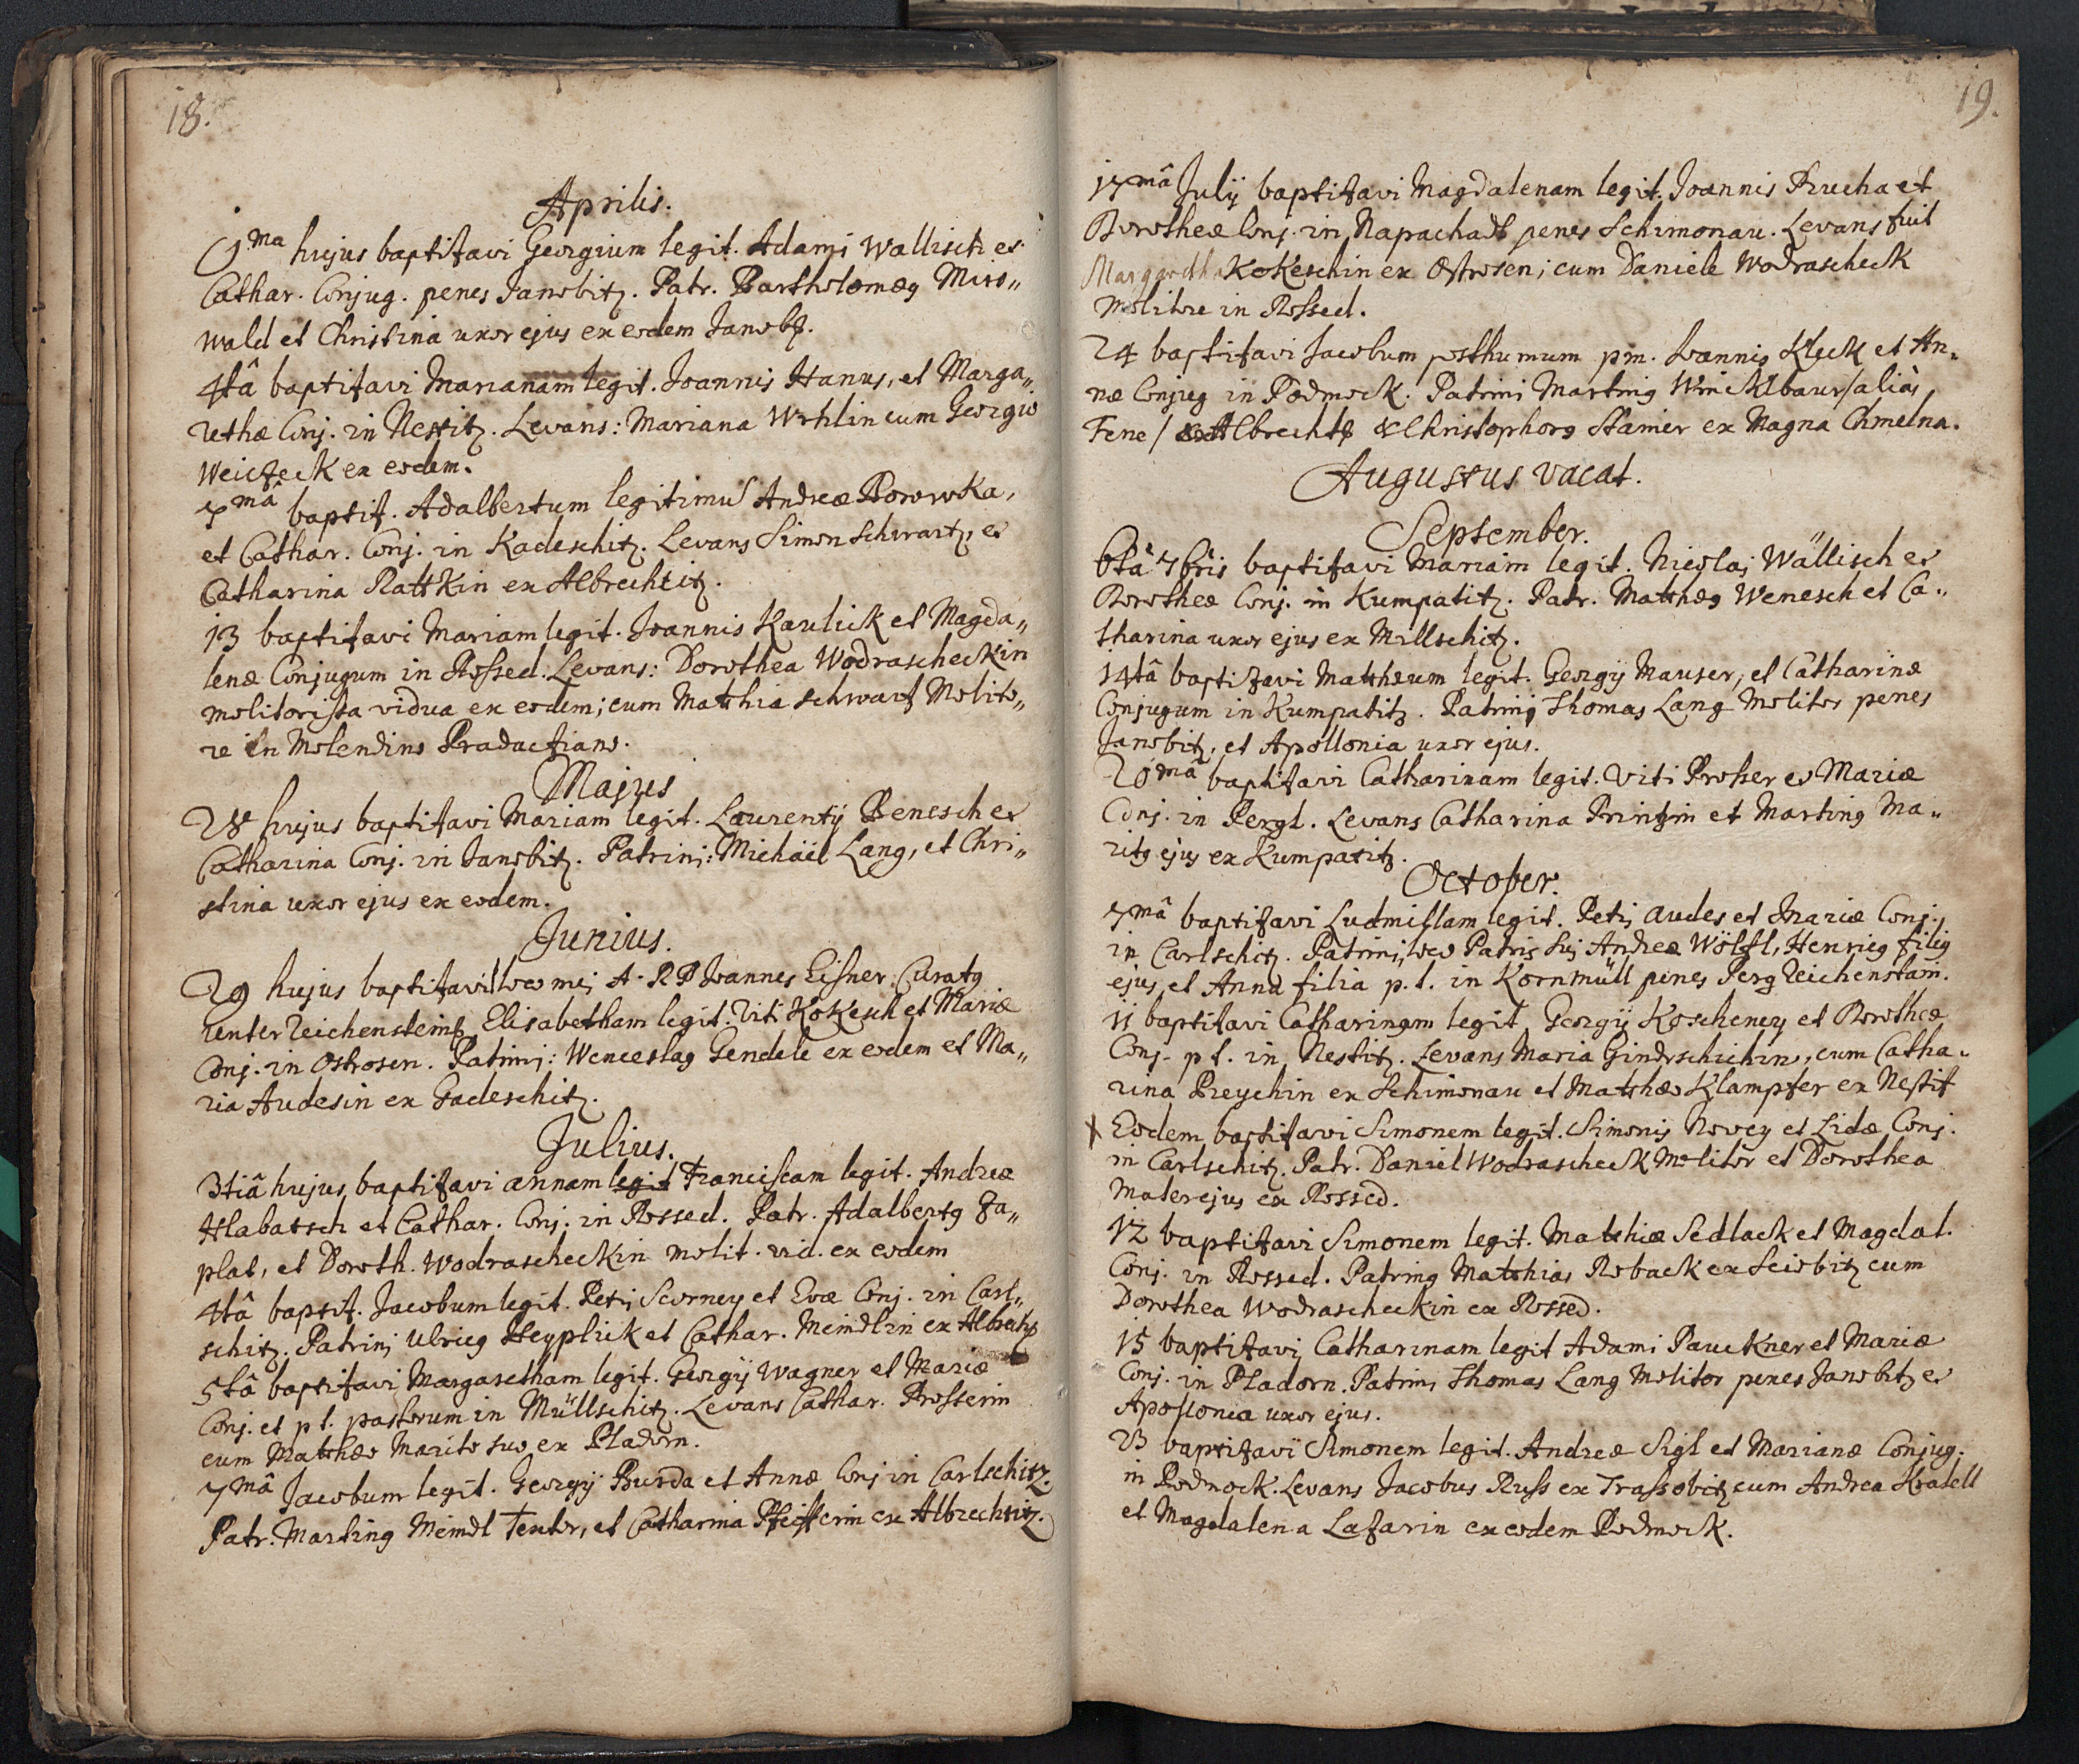 18.
Aprilis.
1ma hujus baptizavi Georgium legit. Adami Wallisch et
Cathar. Conjug. penes Janobitz. Patr. Bartholomæg Miro„
wald et Christina uxor ejus ex eodem Janobz.
4tâ baptizavi Marianam legit. Joannis Hanus, et Marga„
rethæ Conj. in Nestitz. Levans: Mariana Wrhlin cum Georgio
Weiczeck ex eodem.
7mâ baptiz. Adalbertum legitimu Andreæ Borowka,
et Cathar. Conj. in Kadeschitz. Levans Simon Schwartz, et
Catharina Rattkin ex Albrechtitz.
13 baptizavi Mariam legit. Joannis Kaulick et Magda„
lenæ Conjugum in Rossed. Levans: Dorothea Wodrascheckin
molitorissa vidua ex eodem; cum Matthia Schwartz Molito„
re in Molendino Pradactiano.
Majus
28 hujus baptizavi Mariam legit. Laurentij Benesch et
Catharina Conj. in Janobitz. Patrini: Michäel Lang, et Chri„
stina uxor ejus ex eodem.
Junius.
29 hujus baptizavit loco mei A. R P Joannes Eisner Curatg
unter Reichenstein Elisabetham legit. Viti Kokesch et Mariæ
Conj. in Ostrosen. Patrini: Wenceslag Gendele ex eodem et Ma„
ria Audesin ex Gadeschitz.
Julius.
3tiâ hujus baptizavi annam legit Franciscam legit. Andreæ
Hlabatsch et Cathar. Conj. in Rossed. Patr. Adalbertg Za„
plat, et Doroth. Wodrascheckin molit. vid. ex eodem
4tâ baptiz. Jacobum legit. Petri Scorney et Evæ Conj. in Carl„
schitz. Patrini Ulricg Heyplick et Cathar. Meindlin ex Albrechtz
5tâ baptizavi Margaretham legit. Georgij Wagner et Mariæ
Conj. et p t. pastorum in Müllschitz. Levans Cathar. Prosserin
cum Matthæo Marito suo ex Pladorn.
7mâ Jacobum legit. Georgij Burda et Annæ Conj in Carlschitz.
Patr. Marting Meindl Textor, et Catharina Pfeifferin ex Albrechtitz.
19.
17mâ Julij baptizavi Magdalenam legit. Joannis Prucha et
Dorotheæ Conj. in Napachadl penes Schimonau. Levans fuit
Margareth Kokeschin ex Ostrosen; cum Daniele Wodrascheck
Molitore in Rossed.
24 baptizavi Jacobum posthumum pm. Joannis Kleck et An„
næ Conjug in Podmock. Patrini Marting Wincklbaur/aliàs
Fene/ ex Albrechtz & Christophorg Stainer ex Magna Chmelna.
Augustus vacat.
September.
6tâ 7bris baptizavi Mariam legit. Nicolai Wällisch et
Dorotheæ Conj. in Kumpatitz. Patr. Matthæg Wenesch et Ca„
tharina uxor ejus ex Millschitz.
14tâ baptizavi Mattheum legit. Georgij Mauser, et Catharinæ
Conjugum in Kumpatitz. Patrinij Thomas Lang Molitor penes
Janobitz, et Apollonia uxor ejus.
20mâ baptizavi Catharinam legit. Viti Prosser et Mariæ
Conj. in Pergl. Levans Catharina Printzin et Marting Ma„
ritg ejus ex Kumpatitz.
October.
7mâ baptizavi Ludmillam legit. Petri Audes et Mariæ Conj.
in Carlschitz. Patrini, loco Patris sui Andreæ Wölffl, Henricg filig
ejus, et Anna filia p. t. in Kornmüll penes Perg Reichenstain.
11 baptizavi Catharinam legit Georgij Koscheney et Dorotheæ
Conj. p t. in Nestitz. Levans Maria Gindrschichin, cum Catha„
rina Preychin ex Schimonau et Matthæo Klampfer ex Nestitz
x Eodem baptizavi Simonem legit. Simonis Novey et Lidæ Conj.
in Carlschitz. Patr. Daniel Wodrascheck Molitor et Dorothea
Mater ejus ex Rossed.
12 baptizavi Simonem legit. Matthiæ Sedlack et Magdal.
Conj. in Rossed. Patring Matthias Roback ex Seiobitz cum
Dorothea Wodrascheckin ex Rossed.
15 baptizavi Catharinam legit Adami Paurkner et Mariæ
Conj. in Pladorn. Patrini Thomas Lang Molitor penes Janobitz et
Apollonia uxor ejus.
23 baptizavi Simonem legit. Andreæ Sigl et Marianæ Conjug.
in Podmock. Levans Jacobus Russ ex Trassobitz cum Andrea Kratell
et Magdalena Lazarin ex eodem Podmock.